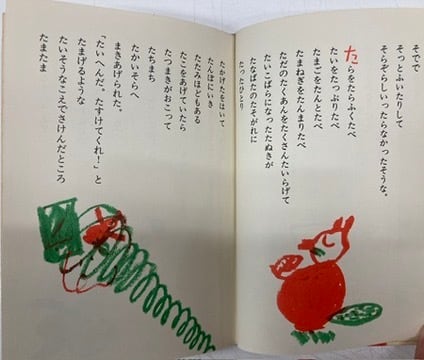 そでで
そっとふいたりして
そらぞらしいったらなかったそうな。
たらをたらふくたべ
たいをたっぷりたべ
たまごをたんとたべ
たまねぎをたんまりたべ
ただのたくあんをたくさんたいらげて
たいこばらになったたぬきが
たなばたのたそがれに
たったひとり
たかげたをはいて
たんぼにいき
たたみほどもある
たこをあげていたら
たつまきがおこって
たちまち
たかいそらへ
まきあげられた。
「たいへんだ。たすけてくれ！」と
たまげるような
たいそうなこえでさけんだところ
たまたま